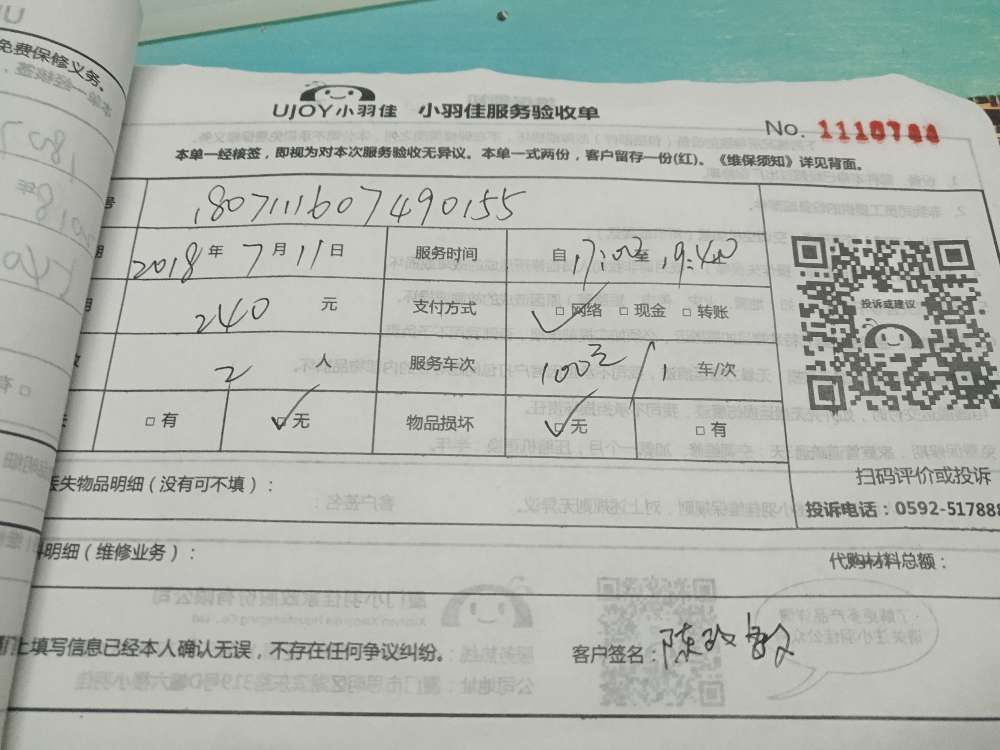 免费保修义务。
UJOY小羽佳 小羽佳服务验收单
No. 1110744
本单一经核签，即视为对本次服务验收无异议。本单一式两份，客户留存一份(红)。《维保须知》详见背面。
号 180711160749015 5
2018 年 7 月 11 日 服务时间 自 17:00 至 19:40
240 元 支付方式 □ 网络 □ 现金 □ 转账
投诉或建议
2 人 服务车次 100元 / 1 车/次
□ 有 □ 无 物品损坏 □ 无 □ 有
扫码评价或投诉
丢失物品明细（没有可不填）：
投诉电话：0592-517888
料明细（维修业务）：
代购材料总额：
上填写信息已经本人确认无误，不存在任何争议纠纷。 客户签名：